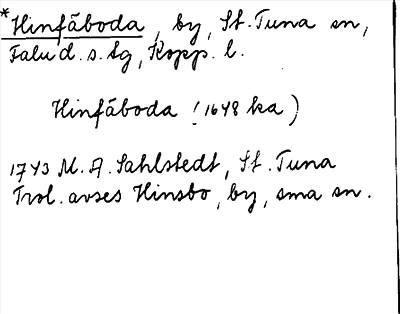 *Hinfäboda, by, St. Tuna sn,
Falu d. s. tg, Kopp. l.
Hinfäboda (1648 ka)
1743 M. A. Sahlstedt, St. Tuna
Trol. avses Hinsbo, by, sma sn.